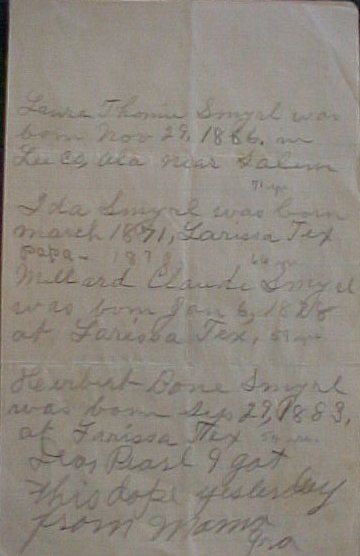 Laura Thomie Smyrl was
born Nov 29, 1866, in
Lee Co, Ala near Salem
71 yrs.
Ida Smyrl was born
march 1871, Larissa Tex
papa - 187
Millard Claude Smyrl
was born Jan 6, 1878
at Larissa Tex, 59 yrs
Heirbert Bone Smyrl
was born Sep 29, 1883,
at Larissa Tex 54 yrs.
Dear Pearl I got
this dope yesterday
from Mama